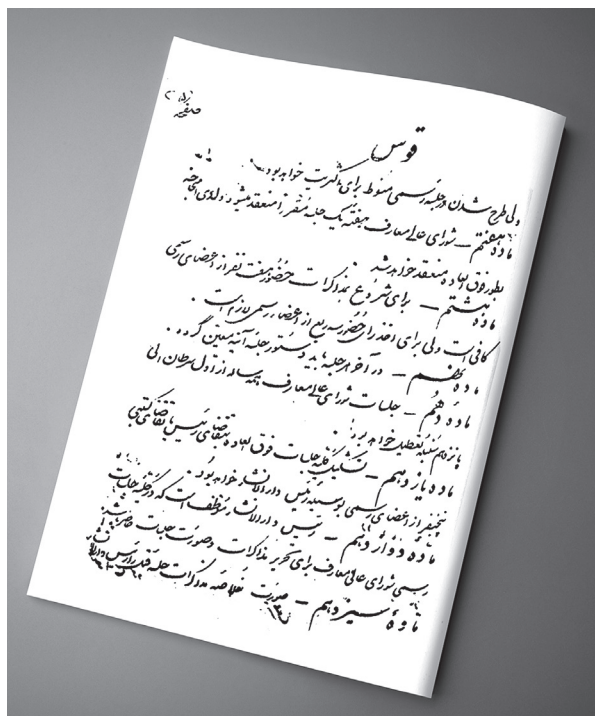 صفحه
قوس
ولی طرح شدن در جلسه رسمی منوط برأی اکثریت خواهد بود.
ماده هفتم — شورای عالی معارف هفتهٔ یک جلسه مقرراً منعقد میشود ولدی الحاجه
بطور فوق العاده منعقد خواهد شد
ماده هشتم — برای شروع بمذاکرات حضور هفت نفر از اعضای رسمی
کافی است ولی برای اخذ رأی حضور سه ربع از اعضاء رسمی لازم است.
ماده نهم — در آخر هر جلسه باید دستور جلسه آتیه معین گردد.
ماده دهم — جلسات شورای عالی معارف همه ساله از اول سرطان الی
پانزدهم سنبله تعطیل خواهد بود
ماده یازدهم — تشکیل کلیه جلسات فوق العاده بتقاضای رئیس یا تقاضای کتبی
پنجنفر از اعضای رسمی بوسیله رئیس دارالانشاء خواهد بود.
ماده دوازدهم — رئیس دارالانشاء موظف است که در کلیه جلسات
رسمی شورای عالی معارف برای تحریر مذاکرات و صورت جلسات حاضر باشد
ماده سیزدهم — صورت خلاصه مذاکرات جلسه قبل را رئیس دارالانشاء